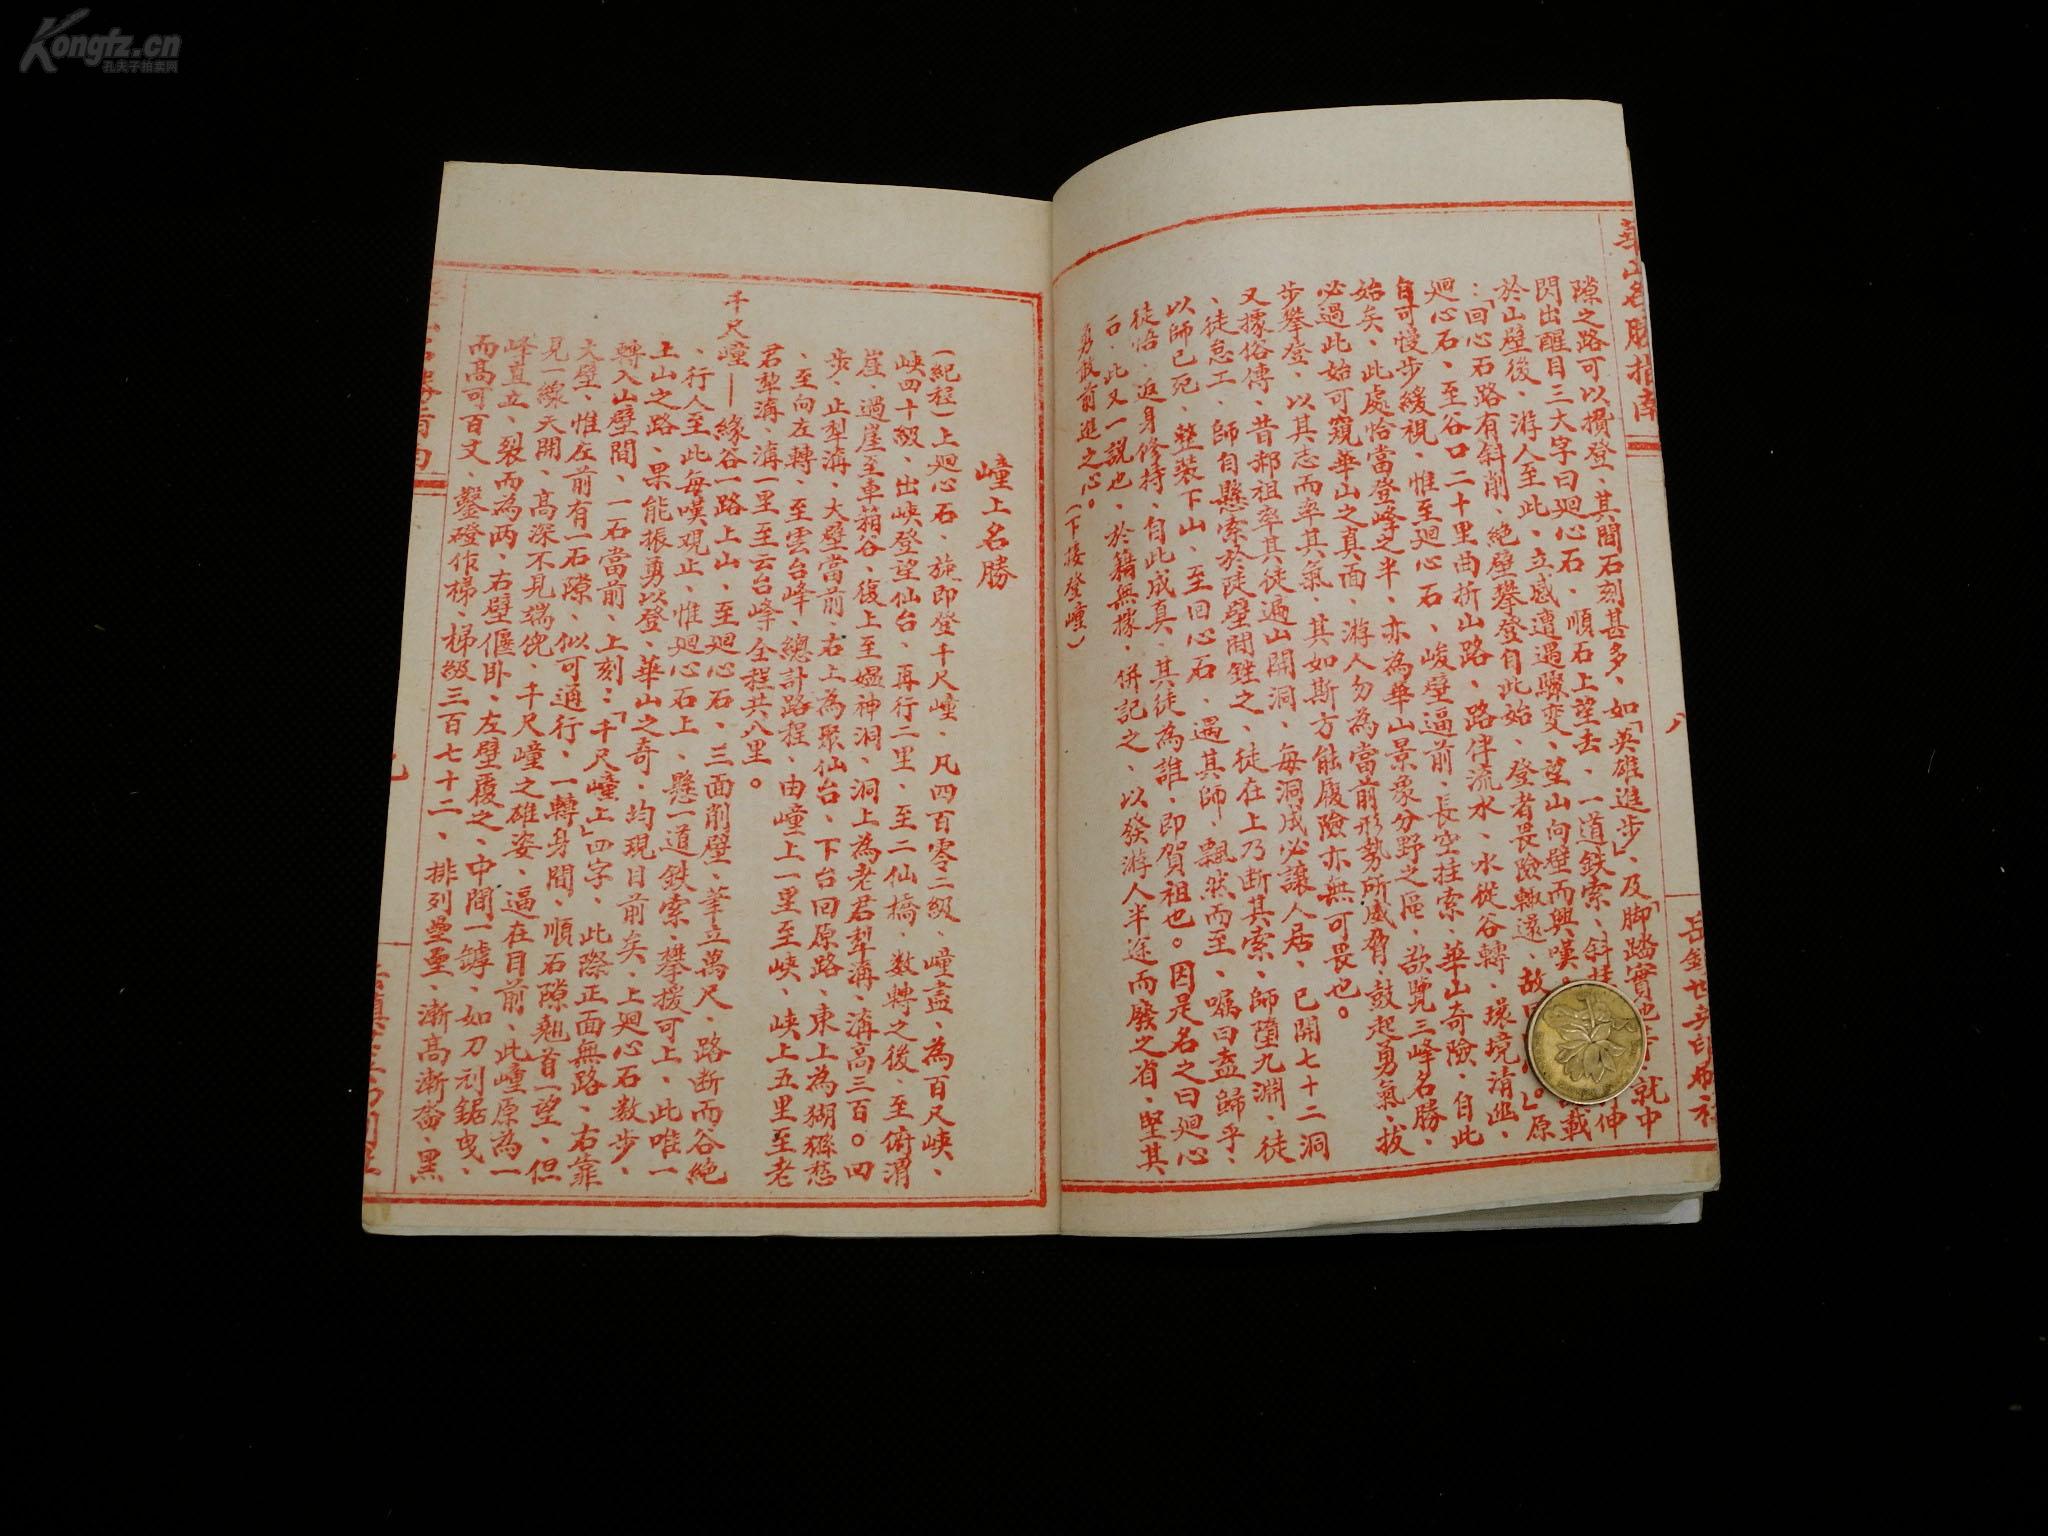 Kongfz.cn
孔夫子拍卖网
華山名勝指南
八
隙之路可以攢登、其間石刻甚多、如「英雄進步」、及「脚踏實地」就中
閃出醒目三大字曰廻心石、順石上望去、一道鉄索、斜伸
於山壁後、游人至此、立感遭遇驟變、望山向壁而興嘆載
：「回心石路有斜削、絕壁攀登自此始、登者畏險輒還、故曰」原
廻心石、至谷口二十里曲折山路、路伴流水、水從谷轉、環境清幽、
自可慢步緩視、惟至廻心石、峻壁逼前、長空挂索、華山奇險、自此
始矣、此處恰當登峰之半、亦為華山景象分野之區、欲覽三峰名勝、
必過此始可窺華山之真面、游人勿為當前形勢所威脅、鼓起勇氣、拔
步攀登、以其志而率其氣、其如斯方能履險亦無可畏也。
又據俗傳、昔郝祖率其徒遍山開洞、每洞成必讓人居、已開七十二洞
、徒怠工、師自懸索於陡壁間銼之、徒在上乃断其索、師墮九淵、徒
以師已死、整裝下山、至回心石、遇其師、飄然而至、嘱曰盍歸乎、
徒悟、返身修持、自此成真、其徒為誰、即賀祖也。因是名之曰廻心
石、此又一說也、於籍無據、併記之、以發游人半途而廢之省、堅其
勇敢前進之心。（下接登㠉）
㠉上名勝
（紀程）上廻心石、旋即登千尺㠉、凡四百零二級、㠉盡、為百尺峡、
峡四十級、出峡登望仙台、再行二里、至二仙橋、数轉之後、至俯渭
崖、過崖至車箱谷、復上至媪神洞、洞上為老君犁溝、溝高三百。四
步、止犁溝、大壁當前、右上為聚仙台、下台回原路、東上為猢猻愁
、至向左轉、至雲台峰、總計路程、由㠉上一里至峡、峡上五里至老
君犁溝、溝一里至云台峰、全程共八里。
千尺㠉——緣谷一路上山、至廻心石、三面削壁、筆立萬尺、路断而谷絕
、行人至此每嘆观止、惟廻心石上、懸一道鉄索、攀援可上、此唯一
上山之路、果能振勇以登、華山之奇、均現目前矣、上廻心石数步、
轉入山壁間、一石當前、上刻：「千尺㠉上」四字、此際正面無路、右靠
大壁、惟左前有一石隙、似可通行、一轉身間、順石隙翹首一望、但
見一線天開、高深不見端倪、千尺㠉之雄姿、逼在目前、此㠉原為一
峰直立、裂而為两、右壁偃卧、左壁覆之、中間一罅、如刀刋鋸曳、
而髙可百丈、鑿磴作梯、梯級三百七十二、排列壘壘、漸高漸窩、黑